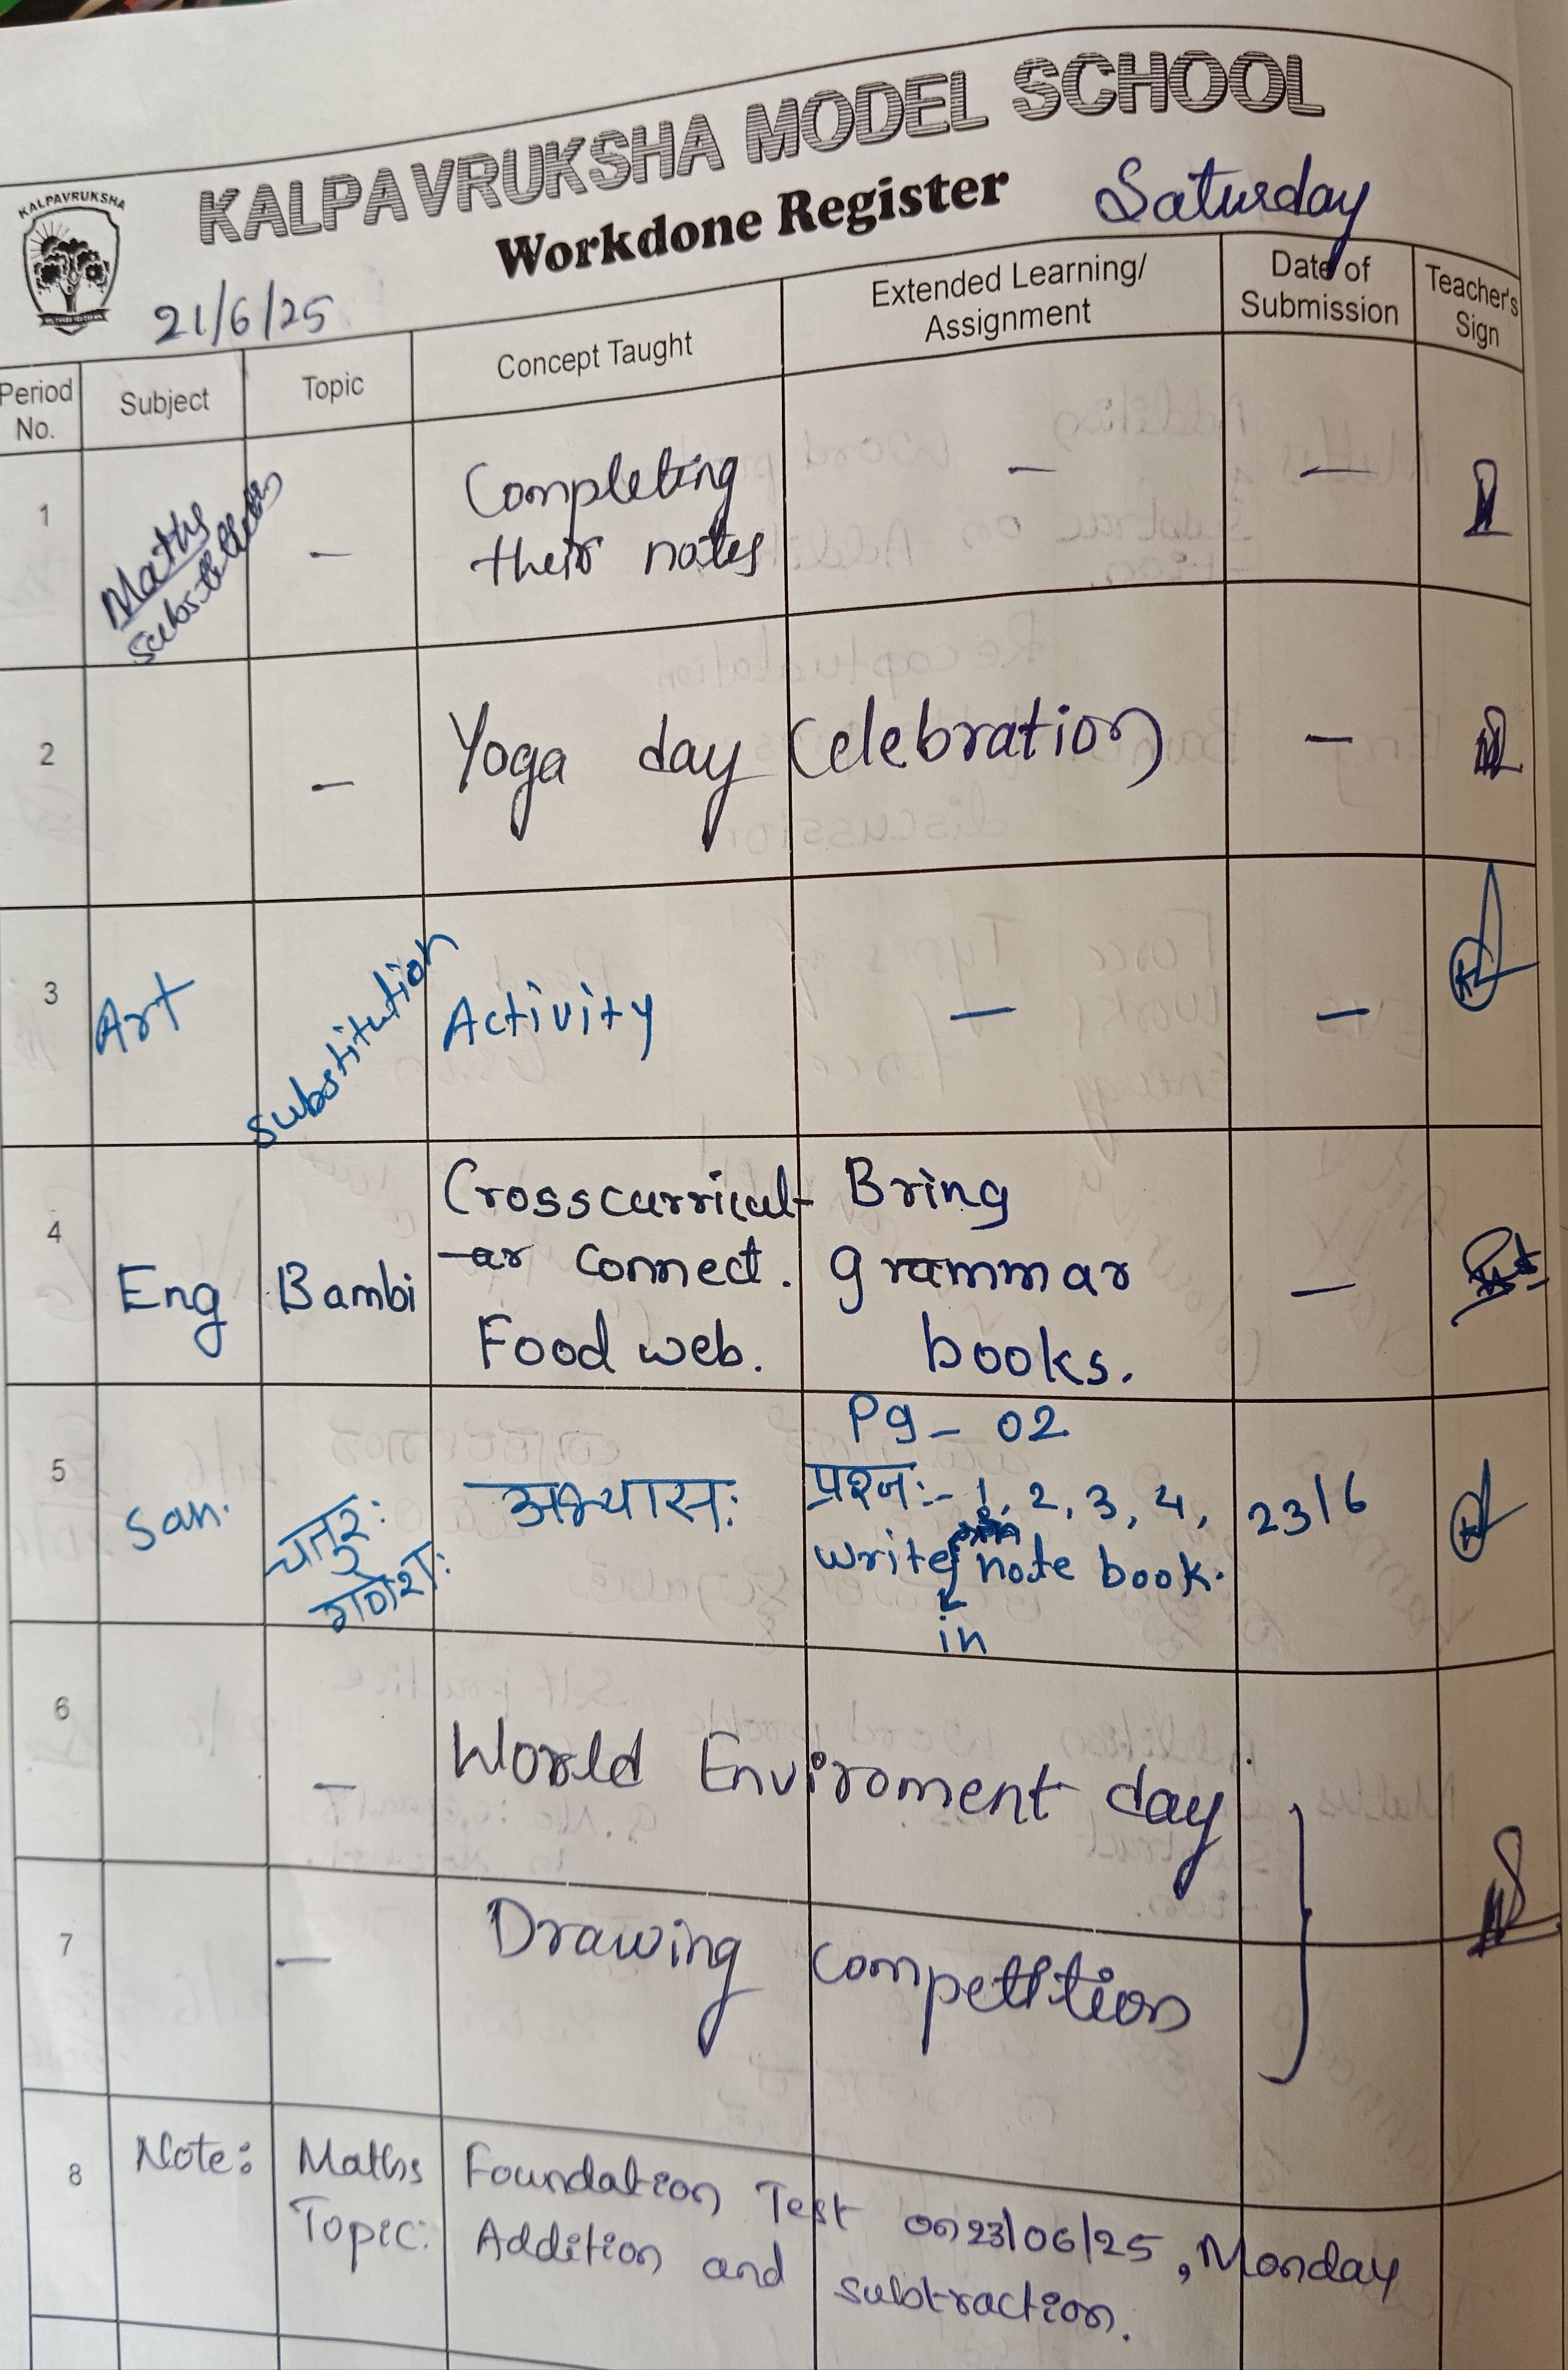 KALPAVRUKSHA MODEL SCHOOL
KALPAVRUKSHA
Workdone Register
Saturday
21/6/25
Period No. Subject Topic Concept Taught Extended Learning/ Assignment Date of Submission Teacher's Sign
1 Maths — Completing — —
their notes
2 — Yoga day Celebration —
3 Art substitution Activity — —
4 Eng Bambi Crosscurricul- Bring —
-ar connect. grammar
Food web. books.
Pg - 02
5 San. चतुरः अभ्यासः प्रश्नः- 1, 2, 3, 4, 23/6
गणेशः write in note book.
6 — World Enviroment day
7 — Drawing competition
8 Note: Maths Foundation Test on 23/06/25, Monday
Topic: Addition and subtraction.